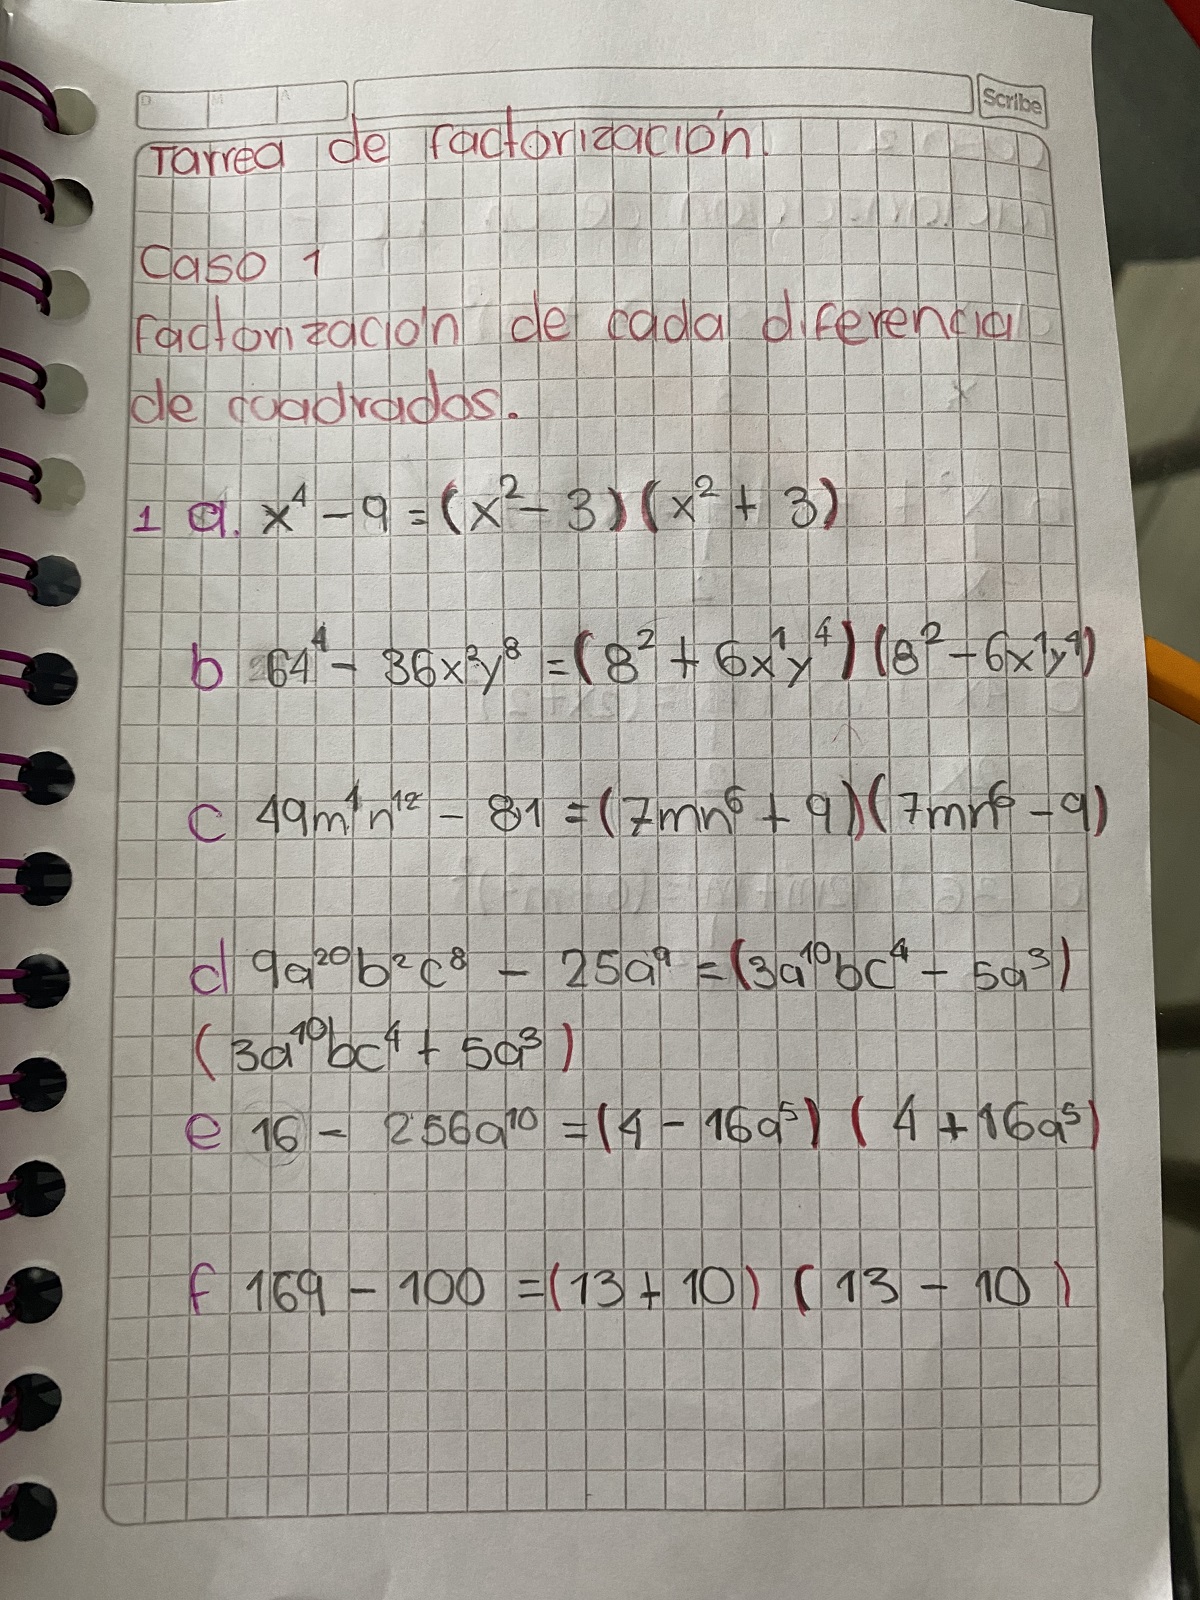 D M A Scribe
Tarrea de factorización.
Caso 1
Factorización de cada diferencia
de cuadrados.
1 a. x⁴ - 9 = (x² - 3) (x² + 3)
b 64⁴ - 36x²y⁸ = (8² + 6x¹y⁴) (8² - 6x¹y⁴)
c 49m⁴n¹² - 81 = (7mn⁶ + 9) (7mn⁶ - 9)
d 9a²⁰b²c⁸ - 25a⁹ = (3a¹⁰bc⁴ - 5a³)
(3a¹⁰bc⁴ + 5a³)
e 16 - 256a¹⁰ = (4 - 16a⁵) (4 + 16a⁵)
f 169 - 100 = (13 + 10) (13 - 10)